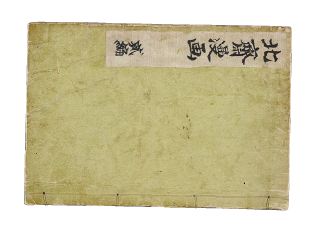 北齋漫画 貳編